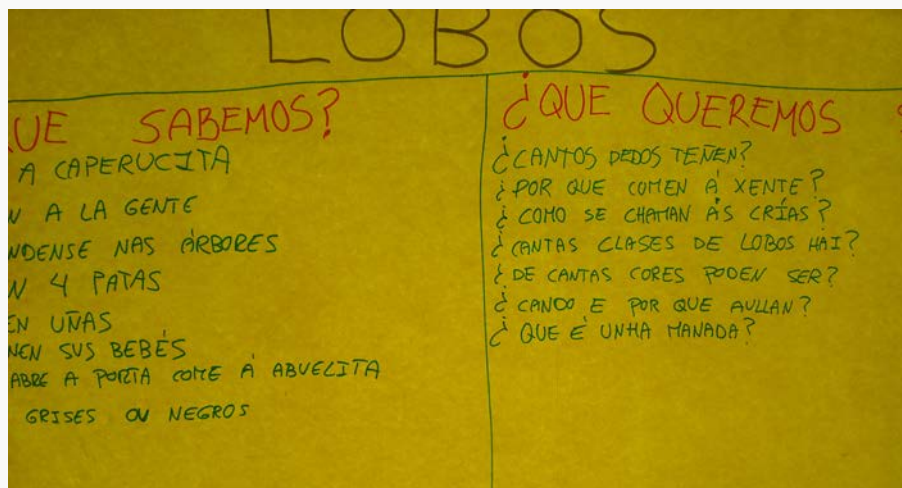 LOBOS
UE SABEMOS?
A CAPERUCITA
N A LA GENTE
NDENSE NAS ÁRBORES
N 4 PATAS
EN UÑAS
NEN SUS BEBÉS
ABRE A PORTA COME Á ABUELITA
GRISES OU NEGROS
¿QUE QUEREMOS
¿CANTOS DEDOS TEÑEN?
¿POR QUE COMEN Á XENTE?
¿COMO SE CHAMAN ÁS CRÍAS?
¿CANTAS CLASES DE LOBOS HAI?
¿DE CANTAS CORES PODEN SER?
¿CANDO E POR QUE AULLAN?
¿QUE É UNHA MANADA?